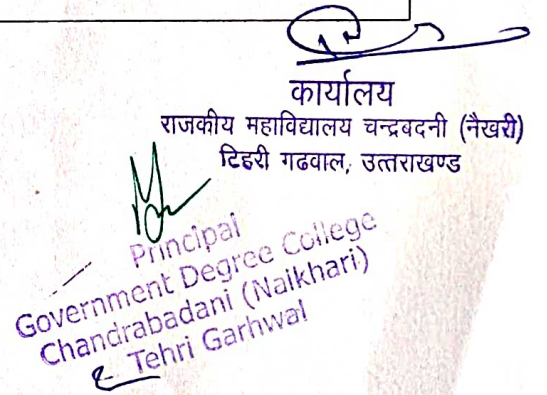 कार्यालय
राजकीय महाविद्यालय चन्द्रबदनी (नैखरी)
टिहरी गढवाल, उत्तराखण्ड
Principal
Government Degree College
Chandrabadani (Naikhari)
Tehri Garhwal